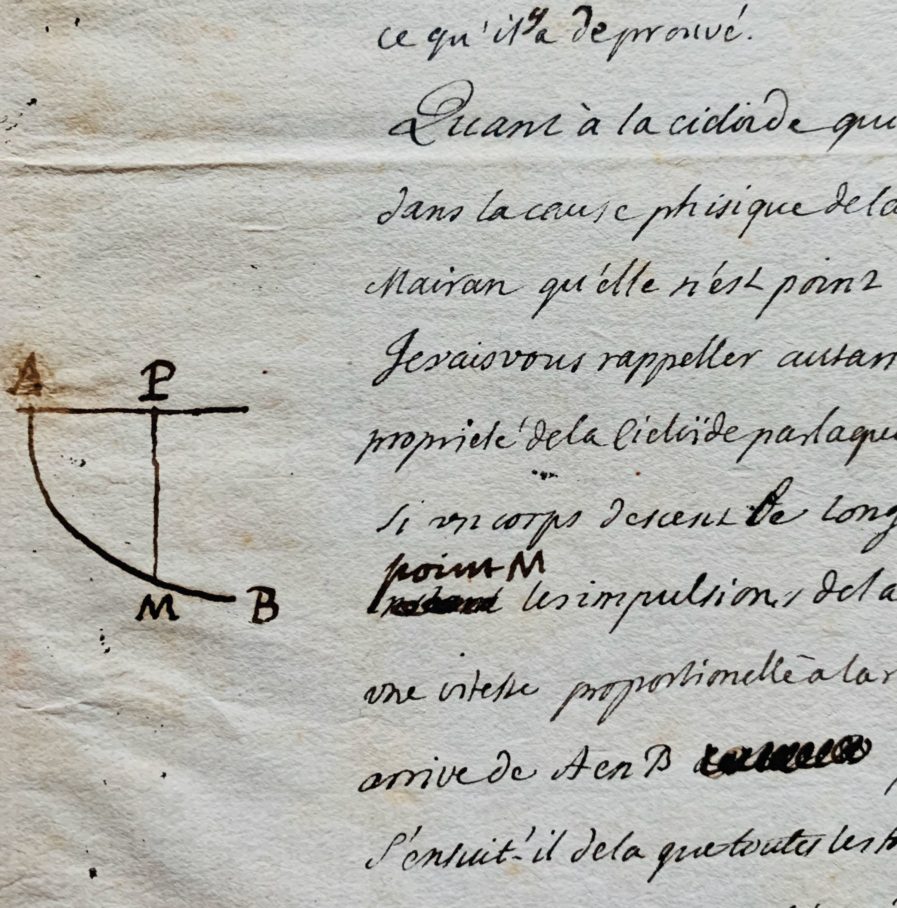 ce qu'il y a de prouvé.
Quant à la cicloide qu
dans la cause phisique de la
Mairan qu'elle n'est point
Je vais vous rappeller autan
proprieté de la Cicloïde par laque
si un corps descent le long
point M
les impulsions de la
une vitesse proportionelle à la r
arrive de A en B
S'ensuit-il de la que toutes les
A P
M B